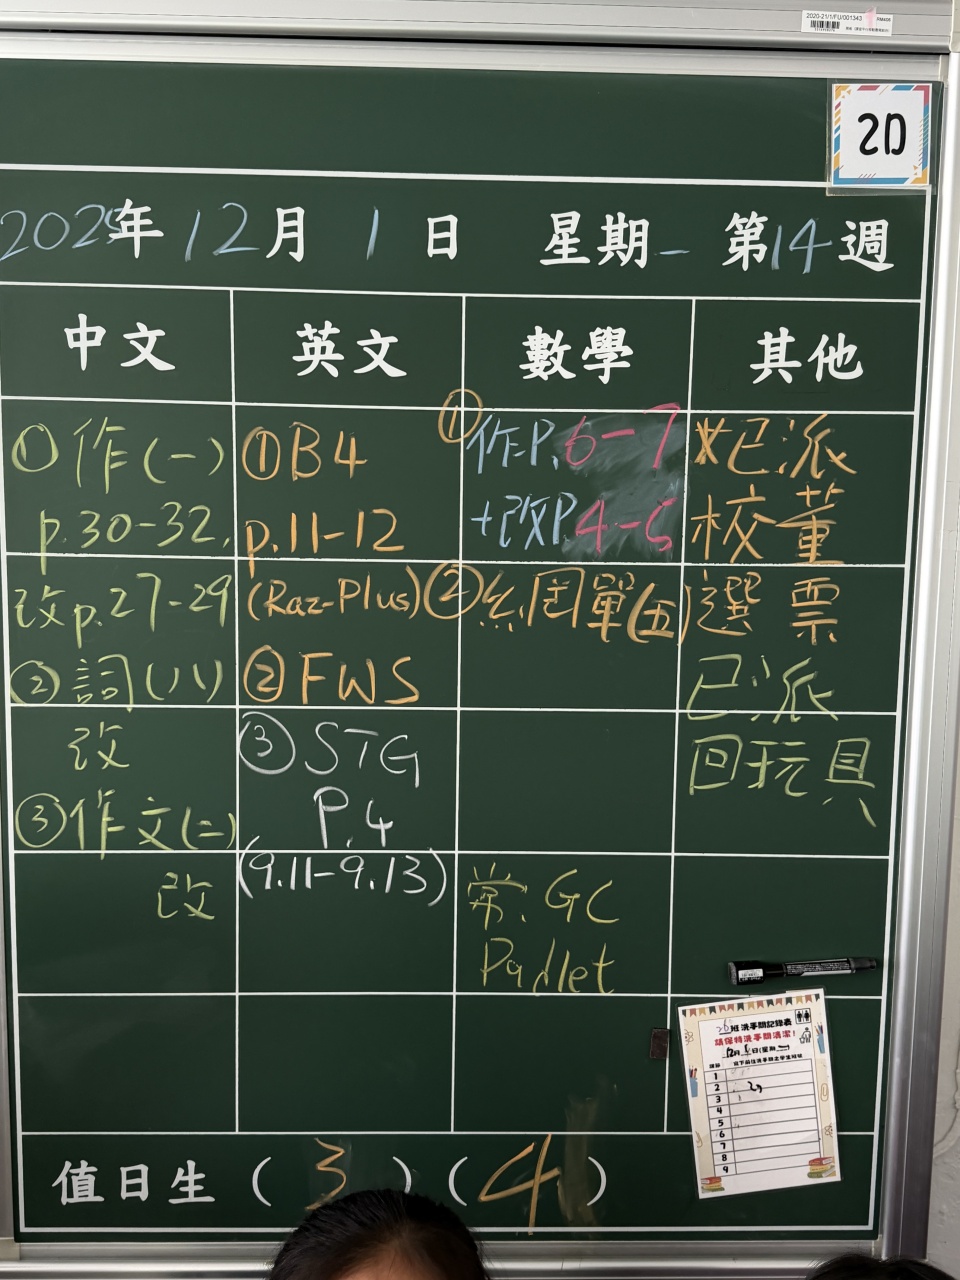 2020-21/1/FU/001343
2D
2025年12月1日 星期一 第14週
中文
英文
數學
其他
①作(一)
p.30-32,
改p.27-29
②詞(八)
改
③作文(二)
改
①B4
p.11-12
(Raz-Plus)
②FWS
③STG
P.4
(9.11-9.13)
①作P.6-7
+改P.4-5
②糸固單(五)
常.GC
Padlet
已派
校董
選票
已派
回玩具
值日生(3)(4)
班洗手間記錄表
請保持洗手間清潔!
12月1日(星期一)
1
2
3
4
5
6
7
8
9